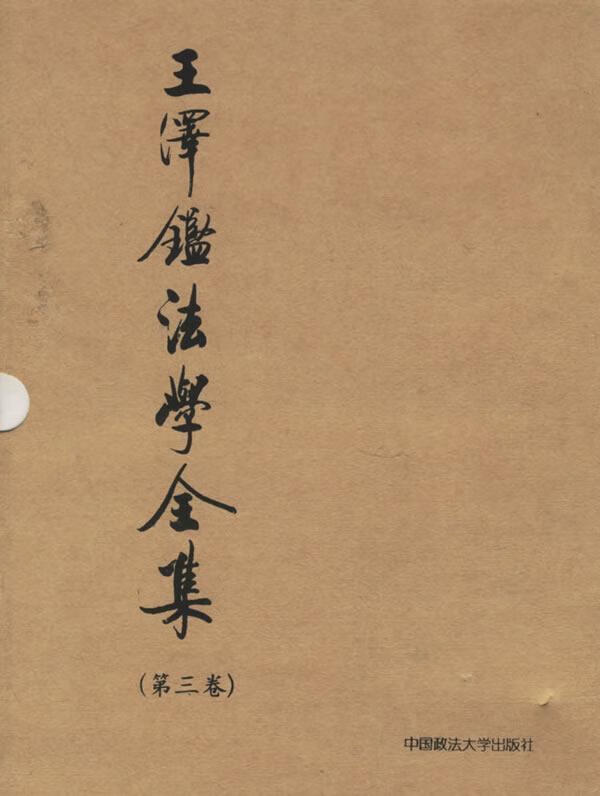 王澤鑑法學全集
（第三卷）
中国政法大学出版社